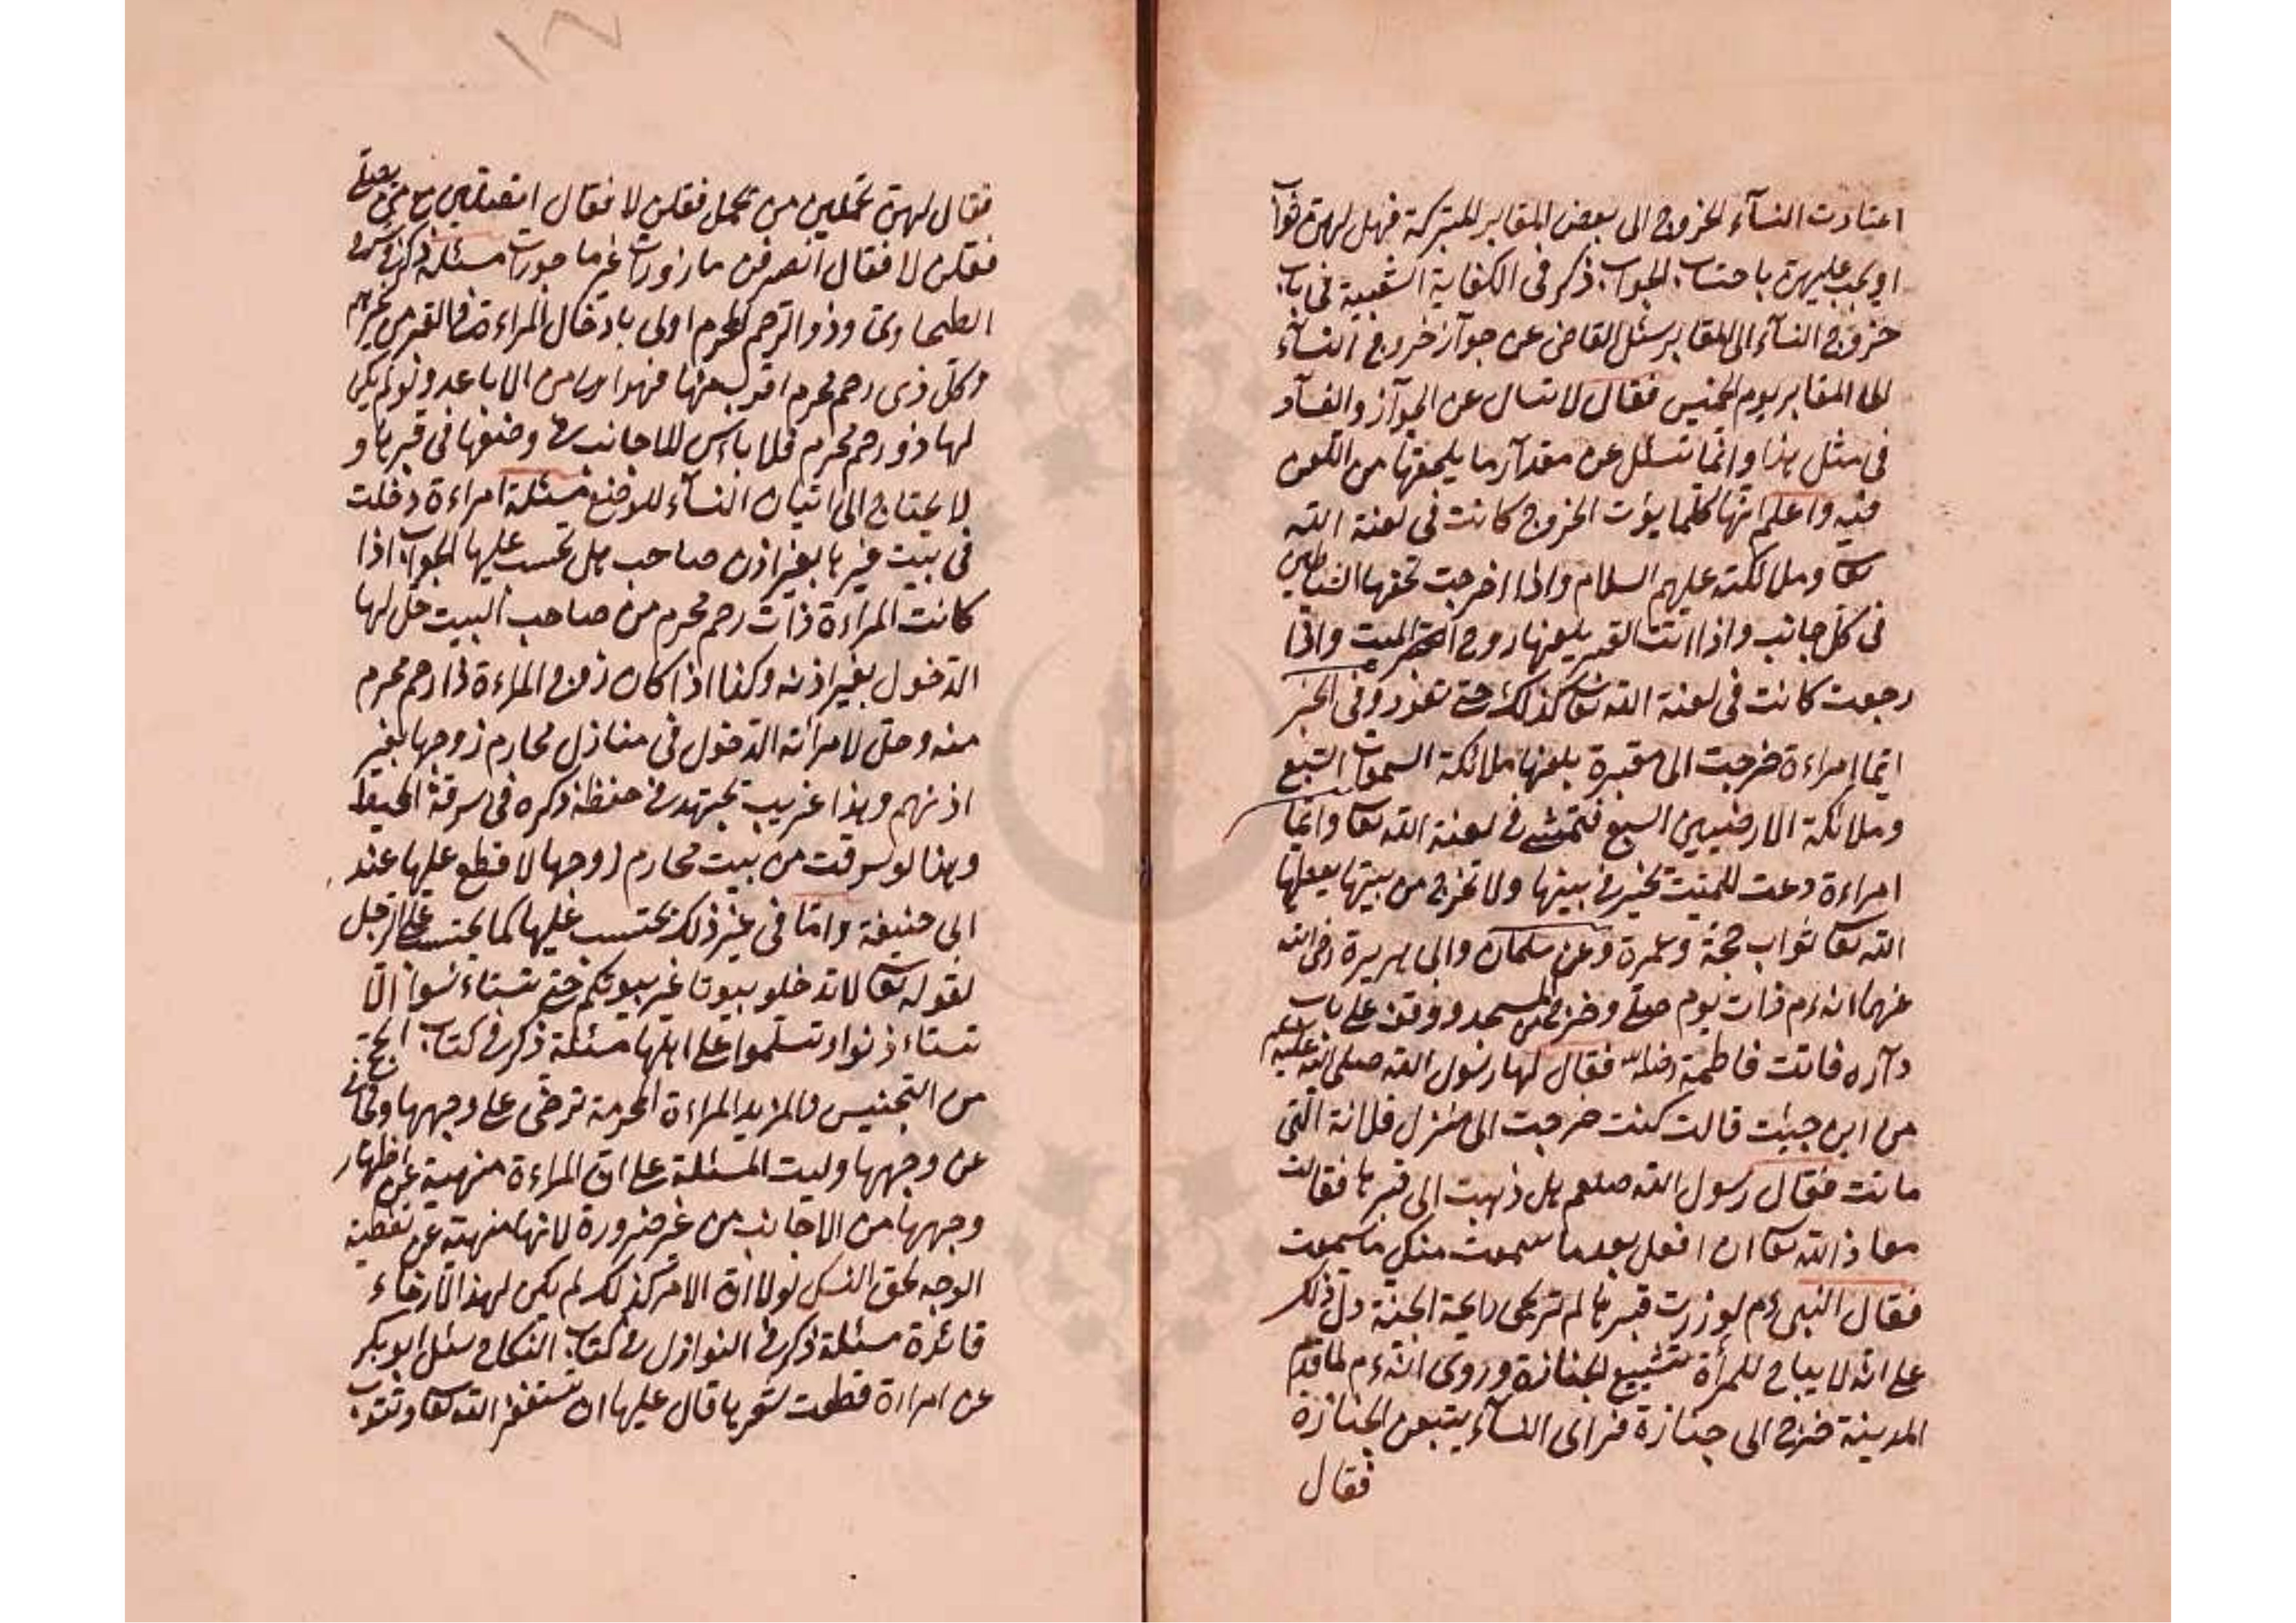 اعتادت النسآء الخروج الى بعض المقابر المتبركة فهل لهن ثواب
او يجب عليهن باحتساب الجواب ذكر فى الكفاية الشعبية فى باب
خروج النسآء الى المقابر سئل القاضى عن جوآز خروج النسآء
الى المقابر يوم الخميس فقال لا تسال عن الجوآز والفسآد
فى مثل هذا وانما تسئل عن مقدآر ما يلحقها من اللعن
فيه واعلم انها كلما نوت الخروج كانت فى لعنة الله
تعا وملائكته عليهم السلام واذا اخرجت تحفها الشياطين
فى كل جانب واذا اتت القبر يلعنها روح الميت واذا
رجعت كانت فى لعنة الله تعا كذلك حتى تعود وفى الخبر
ايما امراءة خرجت الى مقبرة يلعنها ملائكة السموات السبع
وملائكة الارضيين السبع فتمشى فى لعنة الله تعا وايما
امراءة دعت للميت بخير فى بيتها ولا تخرج من بيتها يعطها
الله تعا ثواب حجة وعمرة وعن سلمان وابى هريرة رضى الله
عنهما انه ءم ذات يوم صلى وخرج من المسجد ووقف على باب
دآره فاتت فاطمة رضالله فقال لها رسول الله صلى الله عليه
من اين جيئت قالت كنت خرجت الى منزل فلانة التى
ماتت فقال رسول الله صلعم هل ذهبت الى قبرها فقالت
معاذ الله تعا ان افعل بعدما سمعت منك ما سمعت
فقال النبى ءم لو زرت قبرها لم تريحى رايحة الجنة دل ذلك
على انه لا يباح للمرأة تشييع الجنازة وروى انه ءم لما قدم
المدينة خرج الى جنازة فراى النسآء يتبعن الجنازة
فقال
فقال لهن تحملين من تحمل فقلن لا فقال اتصلين مع من يصلى
فقلن لا فقال انصرفن مازورات غير ماجورات مسئلة ذكر فى شرح
الطحاوى وذو الرحم المحرم اولى بادخال المراءة فى القبر من غيرهم
وكل ذى رحم محرم اقرب منها فهو اولى من الاباعد ولو لم يكن
لها ذو رحم محرم فلا باس للاجانب فى وضعها فى قبرها و
لا يحتاج الى اتيان النسآء للوضع مسئلة امراءة دخلت
فى بيت غيرها بغير اذن صاحب هل تحتسب عليها الجواب اذا
كانت المراءة ذات رحم محرم من صاحب البيت حل لها
الدخول بغير اذنه وكذا اذا كان زوج المراءة ذا رحم محرم
منه وحل لامراته الدخول فى منازل محارم زوجها بغير
اذنهم وهذا غريب يجتهد فى حفظه ذكره فى سرقة المحيط
وهذا لو سرقت من بيت محارم زوجها لا قطع عليها عند
ابى حنيفة واما فى غير ذلك يحتسب عليها كما يحتسب على الرجل
لقوله تعا لا تدخلو بيوتا غير بيوتكم حتى تستاءنسوا الا
تستاءذنوا وتسلموا على اهلها مسئلة ذكر فى كتاب الحج
من التجنيس والمزيد المراءة المحرمة ترخى على وجهها وتجافى
عن وجهها وليت المسئلة على ان المراءة منهية عن اظهار
وجهها من الاجانب من غير ضرورة لانها منهية عن تغطية
الوجه لحق النسك لولا ان الامر كذلك لم يكن لهذا الارخاء
فائدة مسئلة ذكر فى النوازل فى كتاب النكاح سئل ابو بكر
عن امراءة قطعت شعرها قال عليها ان تستغفر الله تعا وتتوب